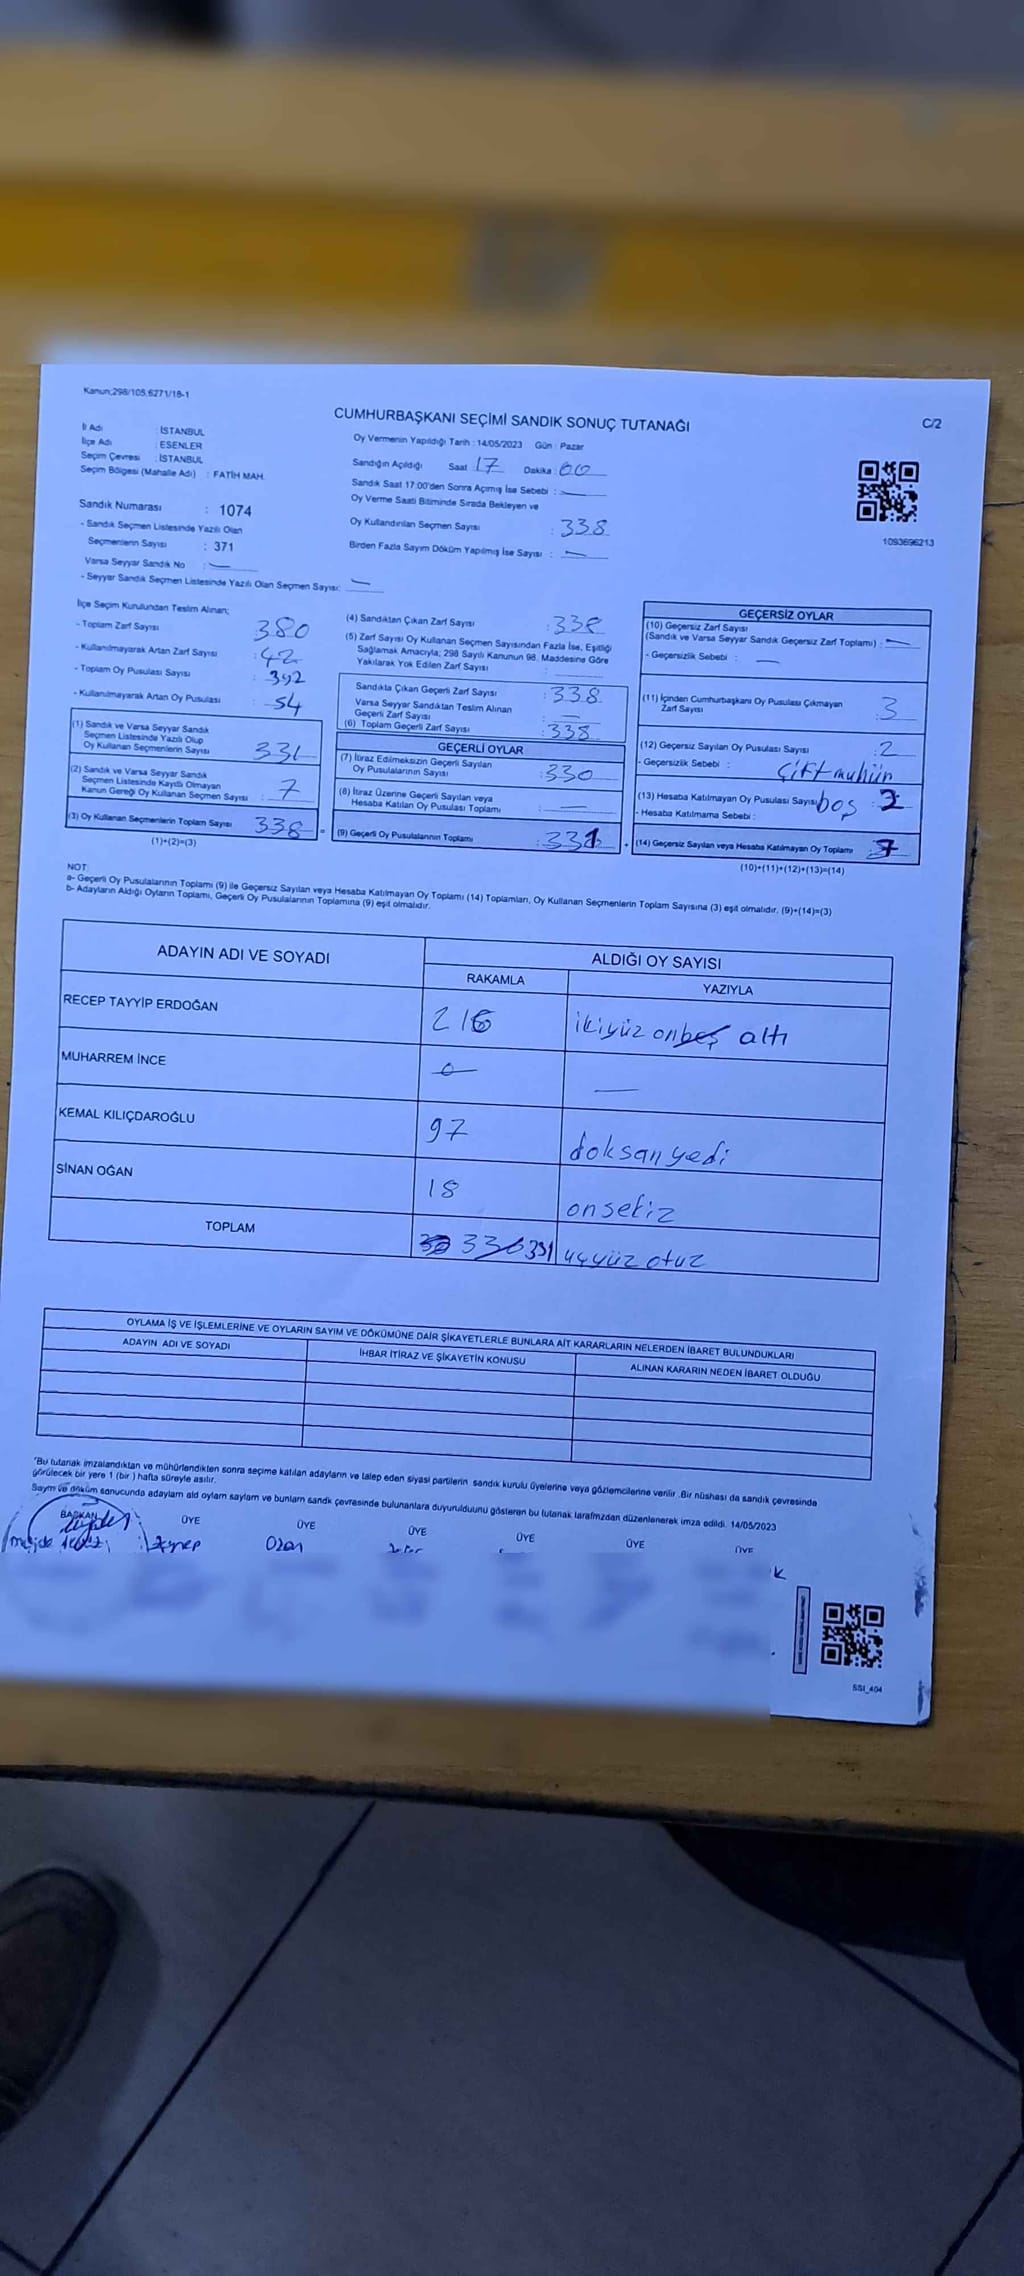 Kanun;298/105,6271/18-1
CUMHURBAŞKANI SEÇİMİ SANDIK SONUÇ TUTANAĞI
C/2
İl Adı : İSTANBUL
İlçe Adı : ESENLER
Seçim Çevresi : İSTANBUL
Seçim Bölgesi (Mahalle Adı) : FATİH MAH.
Sandık Numarası : 1074
- Sandık Seçmen Listesinde Yazılı Olan
Seçmenlerin Sayısı : 371
Varsa Seyyar Sandık No : —
- Seyyar Sandık Seçmen Listesinde Yazılı Olan Seçmen Sayısı: —
Oy Vermenin Yapıldığı Tarih : 14/05/2023 Gün : Pazar
Sandığın Açıldığı Saat 17 Dakika : 00
Sandık Saat 17:00'den Sonra Açımış İse Sebebi : —
Oy Verme Saati Bitiminde Sırada Bekleyen ve
Oy Kullandırılan Seçmen Sayısı : 338
Birden Fazla Sayım Döküm Yapılmış İse Sayısı : —
1093696213
İlçe Seçim Kurulundan Teslim Alınan;
- Toplam Zarf Sayısı : 380
- Kullanılmayarak Artan Zarf Sayısı : 42
- Toplam Oy Pusulası Sayısı : 392
- Kullanılmayarak Artan Oy Pusulası : 54
(1) Sandık ve Varsa Seyyar Sandık
Seçmen Listesinde Yazılı Olup
Oy Kullanan Seçmenlerin Sayısı : 331
(2) Sandık ve Varsa Seyyar Sandık
Seçmen Listesinde Kayıtlı Olmayan
Kanun Gereği Oy Kullanan Seçmen Sayısı : 7
(3) Oy Kullanan Seçmenlerin Toplam Sayısı : 338 =
(1)+(2)=(3)
(4) Sandıktan Çıkan Zarf Sayısı : 338
(5) Zarf Sayısı Oy Kullanan Seçmen Sayısından Fazla İse, Eşitliği
Sağlamak Amacıyla; 298 Sayılı Kanunun 98. Maddesine Göre
Yakılarak Yok Edilen Zarf Sayısı :
Sandıkta Çıkan Geçerli Zarf Sayısı : 338
Varsa Seyyar Sandıktan Teslim Alınan
Geçerli Zarf Sayısı : —
(6) Toplam Geçerli Zarf Sayısı : 338
GEÇERLİ OYLAR
(7) İtiraz Edilmeksizin Geçerli Sayılan
Oy Pusulalarının Sayısı : 330
(8) İtiraz Üzerine Geçerli Sayılan veya
Hesaba Katılan Oy Pusulası Toplamı : —
(9) Geçerli Oy Pusulalarının Toplamı : 331 +
GEÇERSİZ OYLAR
(10) Geçersiz Zarf Sayısı
(Sandık ve Varsa Seyyar Sandık Geçersiz Zarf Toplamı) : —
- Geçersizlik Sebebi : —
(11) İçinden Cumhurbaşkanı Oy Pusulası Çıkmayan
Zarf Sayısı : 3
(12) Geçersiz Sayılan Oy Pusulası Sayısı : 2
- Geçersizlik Sebebi : çift mühür
(13) Hesaba Katılmayan Oy Pusulası Sayısı boş : 2
- Hesaba Katılmama Sebebi :
(14) Geçersiz Sayılan veya Hesaba Katılmayan Oy Toplamı : 7
(10)+(11)+(12)+(13)=(14)
NOT:
a- Geçerli Oy Pusulalarının Toplamı (9) ile Geçersiz Sayılan veya Hesaba Katılmayan Oy Toplamı (14) Toplamları, Oy Kullanan Seçmenlerin Toplam Sayısına (3) eşit olmalıdır. (9)+(14)=(3)
b- Adayların Aldığı Oyların Toplamı, Geçerli Oy Pusulalarının Toplamına (9) eşit olmalıdır.
ADAYIN ADI VE SOYADI ALDIĞI OY SAYISI
RAKAMLA YAZIYLA
RECEP TAYYİP ERDOĞAN 216 ikiyüz onbeş altı
MUHARREM İNCE 0 —
KEMAL KILIÇDAROĞLU 97 doksanyedi
SİNAN OĞAN 18 onsekiz
TOPLAM 330 331 üçyüz otuz
OYLAMA İŞ VE İŞLEMLERİNE VE OYLARIN SAYIM VE DÖKÜMÜNE DAİR ŞİKAYETLERLE BUNLARA AİT KARARLARIN NELERDEN İBARET BULUNDUKLARI
ADAYIN ADI VE SOYADI İHBAR İTİRAZ VE ŞİKAYETİN KONUSU ALINAN KARARIN NEDEN İBARET OLDUĞU
*Bu tutanak imzalandıktan ve mühürlendikten sonra seçime katılan adayların ve talep eden siyasi partilerin sandık kurulu üyelerine veya gözlemcilerine verilir .Bir nüshası da sandık çevresinde
görülecek bir yere 1 (bir ) hafta süreyle asılır.
Sayım ve döküm sonucunda adayların ald oyların sayları ve bunların sandk çevresinde bulunanlara duyurulduunu gösteren bu tutanak tarafmzdan düzenlenerek imza edildi. 14/05/2023
BAŞKAN ÜYE ÜYE ÜYE ÜYE ÜYE ÜYE
Zeynep Ozan
SSI_404